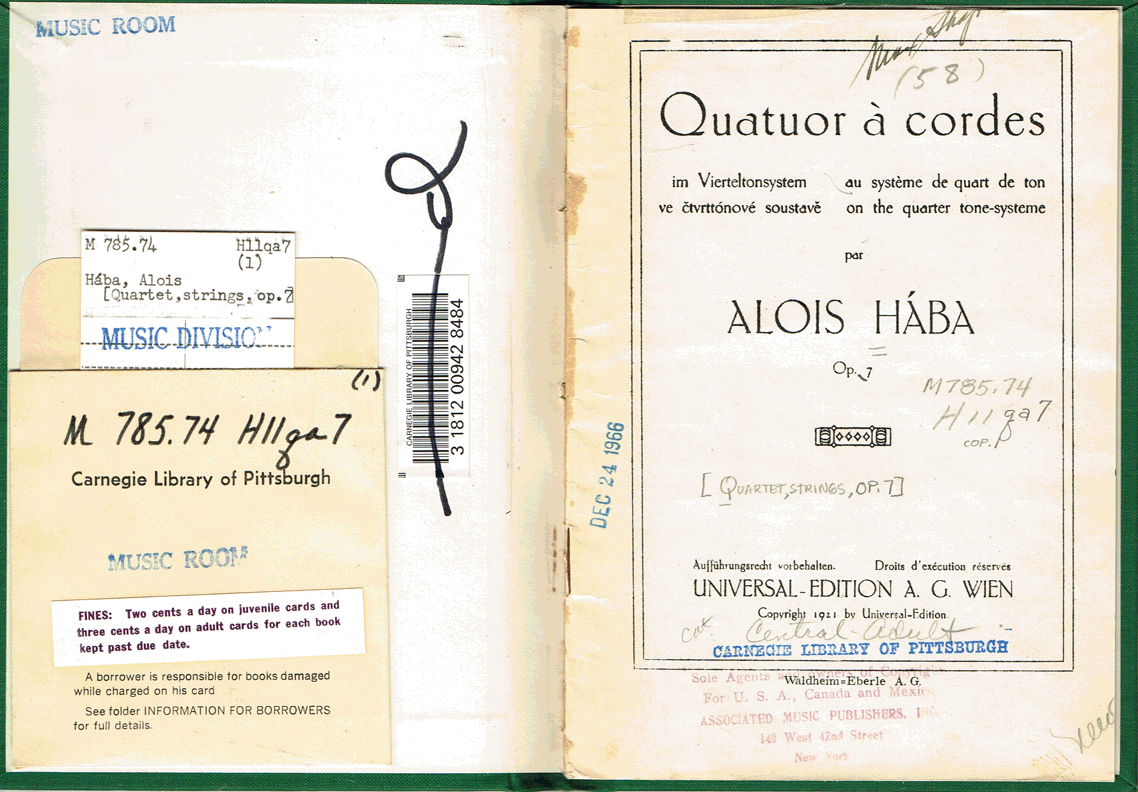 MUSIC ROOM
M 785.74 H11qa7
(1)
Hába, Alois
[Quartet,strings, op.7
MUSIC DIVISION
(1)
M 785.74 H11qa7
Carnegie Library of Pittsburgh
MUSIC ROOM
FINES: Two cents a day on juvenile cards and
three cents a day on adult cards for each book
kept past due date.
A borrower is responsible for books damaged
while charged on his card
See folder INFORMATION FOR BORROWERS
for full details.
CARNEGIE LIBRARY OF PITTSBURGH
3 1812 00942 8484
DEC 24 1966
(58)
Quatuor à cordes
im Vierteltonsystem au système de quart de ton
ve čtvrttónové soustavě on the quarter tone-systeme
par
ALOIS HÁBA
Op. 7
M785.74
H11qa7
COP.
[QUARTET, STRINGS, OP. 7]
Aufführungsrecht vorbehalten. Droits d'exécution réservés
UNIVERSAL-EDITION A. G. WIEN
Copyright 1921 by Universal-Edition.
cat. Central-Adult
CARNEGIE LIBRARY OF PITTSBURGH
Sole Agents and owners of Copyright
Waldheim=Eberle A. G.
For U. S. A., Canada and Mexico
ASSOCIATED MUSIC PUBLISHERS, INC.
140 West 42nd Street
New York